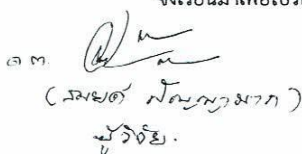 จึงเรียนมาเพื่อโปร
ด.ต.
(สมยศ ปัญญามาก)
ผู้วิจัย.